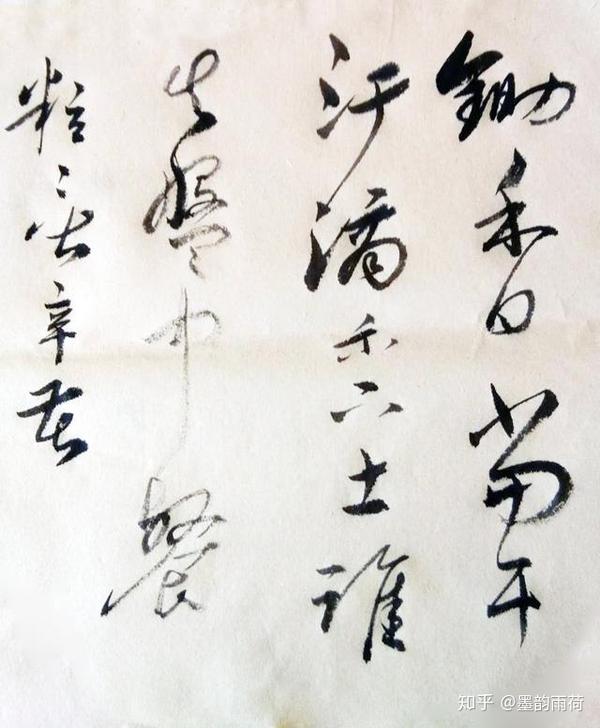 鋤禾日當午
汗滴禾下土誰
知盤中餐
粒〻皆辛苦
知乎 @墨韵雨荷